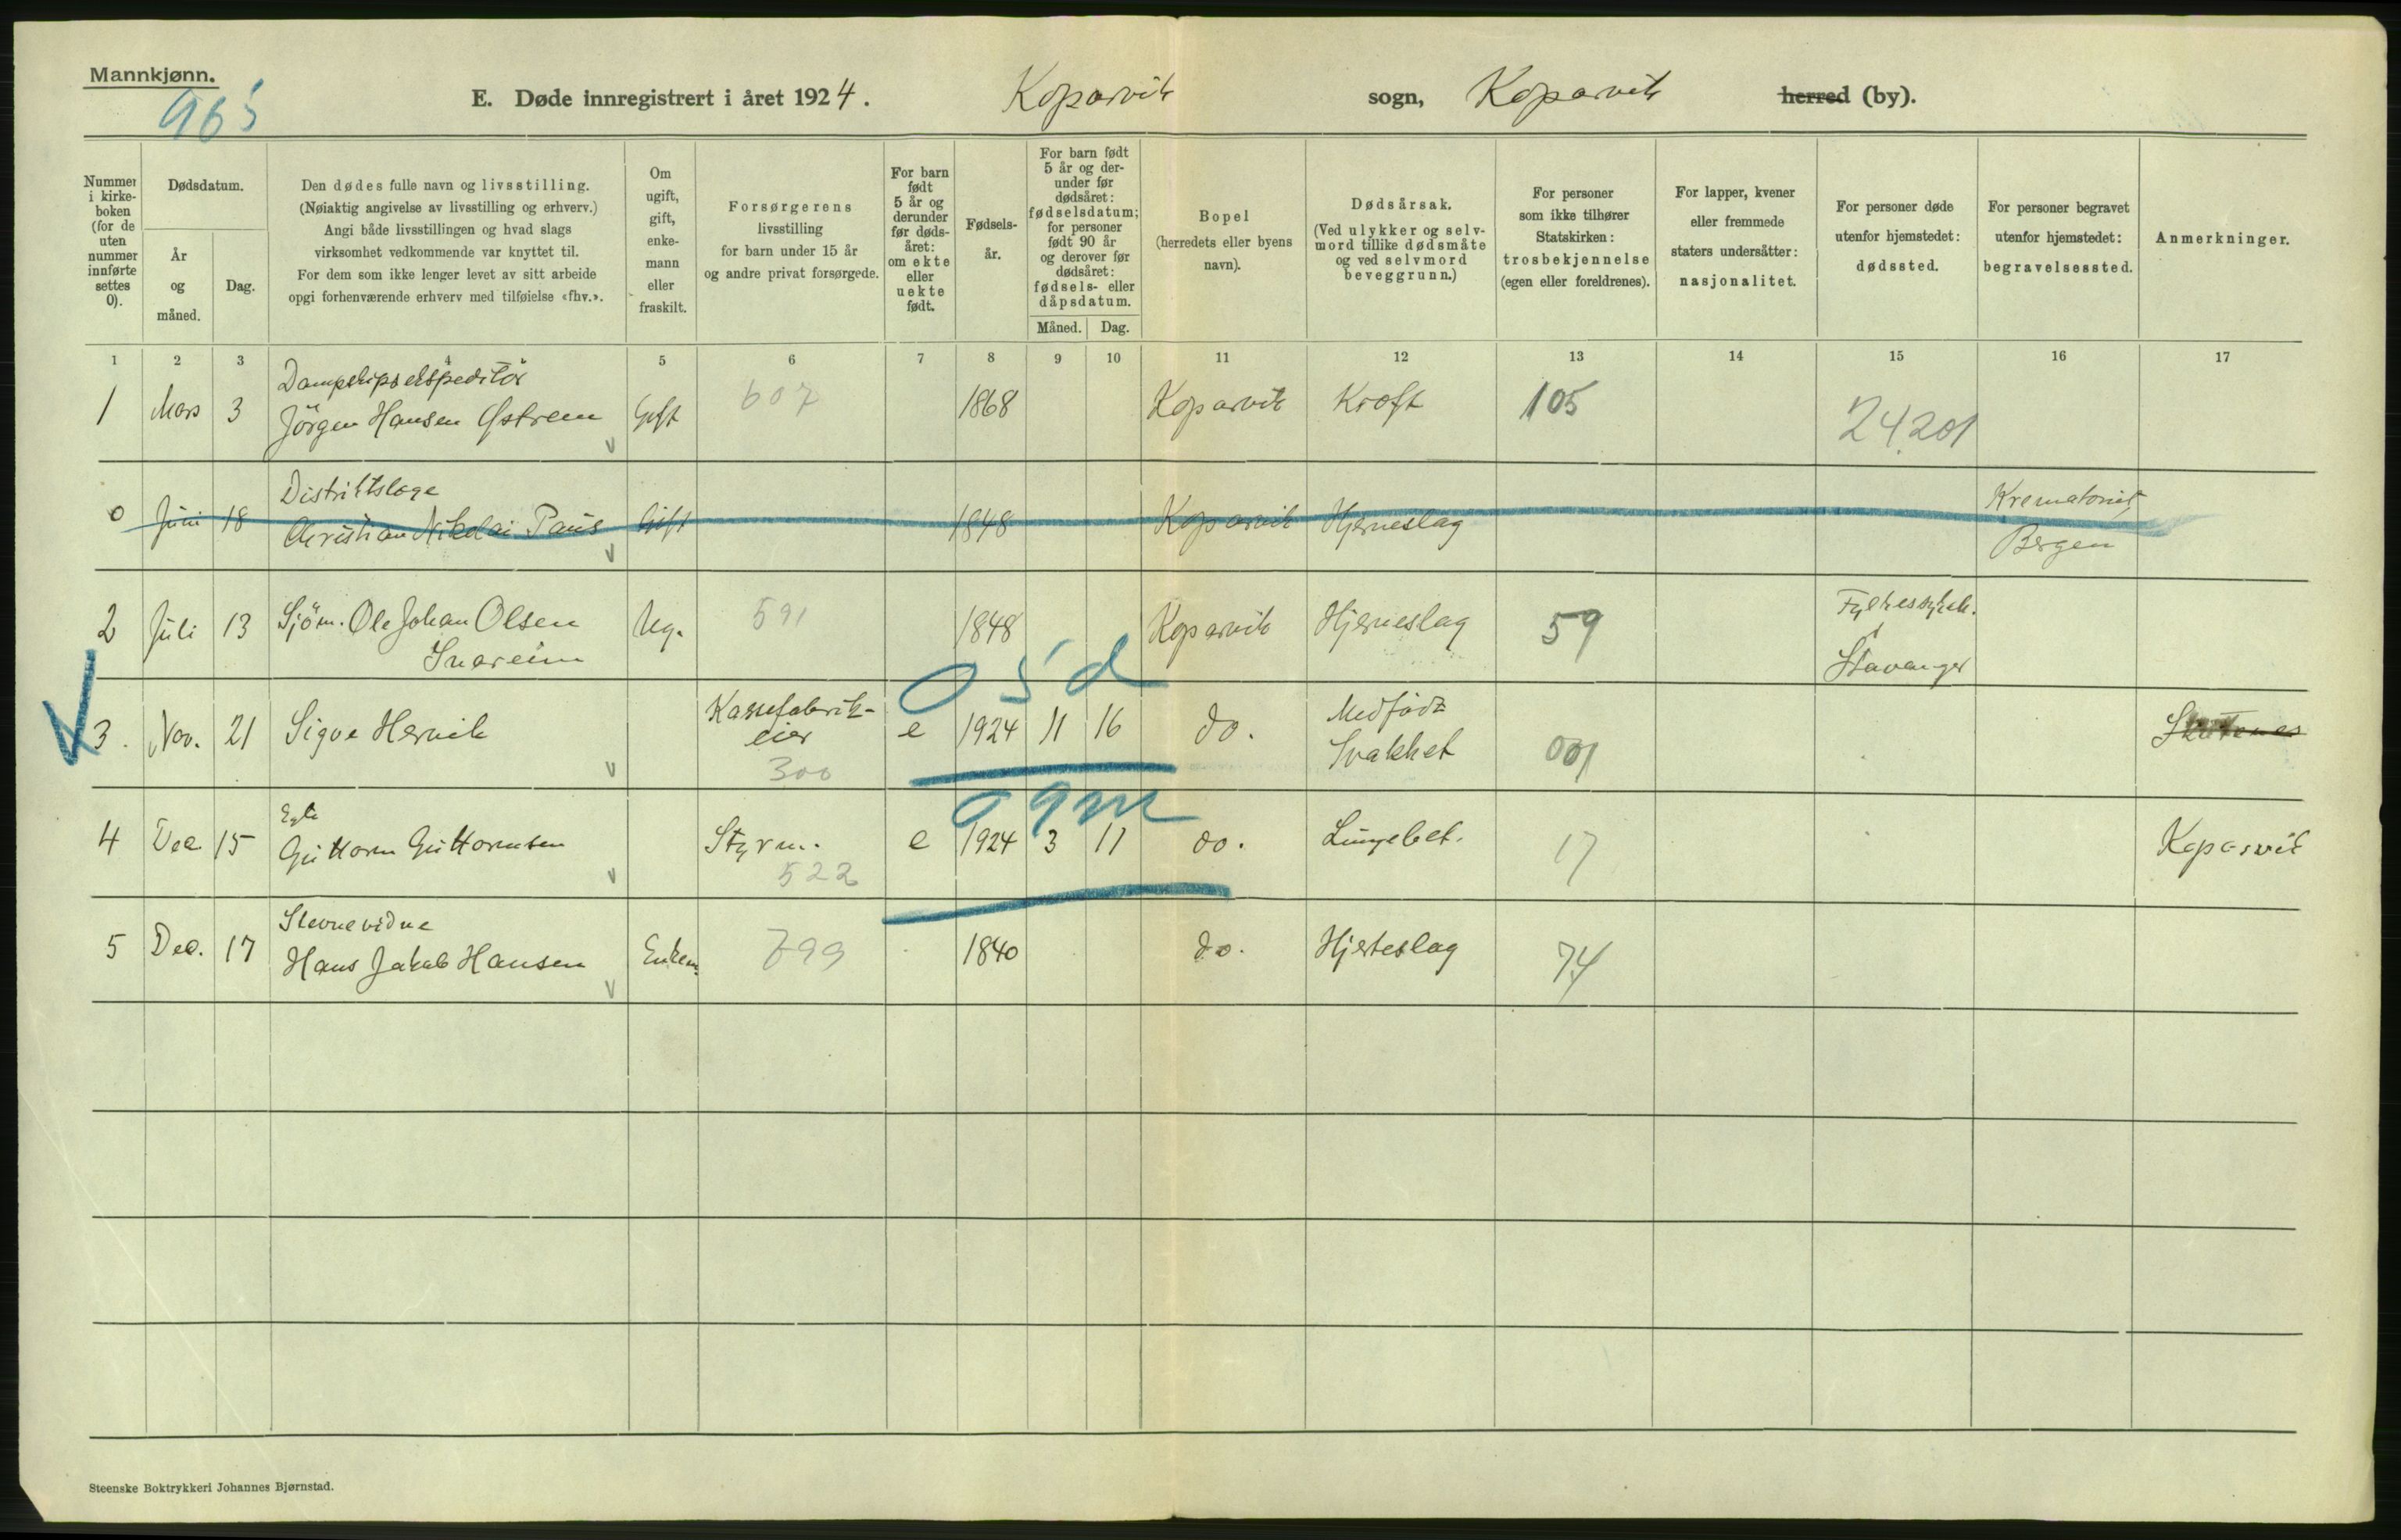 Mannkjønn.
965
E. Døde innregistrert i året 1924. Koparvik sogn, Koparvik herred (by).
Nummer i kirkeboken (for de uten nummer innførte settes 0).
Dødsdatum.
År og måned.
Dag.
Den dødes fulle navn og livsstilling.
(Nøiaktig angivelse av livsstilling og erhverv.)
Angi både livsstillingen og hvad slags
virksomhet vedkommende var knyttet til.
For dem som ikke lenger levet av sitt arbeide
opgi forhenværende erhverv med tilføielse «fhv.».
Om ugift, gift, enkemann eller fraskilt.
Forsørgerens
livsstilling
for barn under 15 år
og andre privat forsørgede.
For barn født 5 år og derunder før dødsåret: om ekte eller uekte født.
Fødselsår.
For barn født 5 år og derunder før dødsåret: fødselsdatum; for personer født 90 år og derover før dødsåret: fødsels- eller dåpsdatum.
Måned. Dag.
Bopel
(herredets eller byens
navn).
Dødsårsak.
(Ved ulykker og selvmord tillike dødsmåte og ved selvmord beveggrunn.)
For personer
som ikke tilhører
Statskirken:
trosbekjennelse
(egen eller foreldrenes).
For lapper, kvener
eller fremmede
staters undersåtter:
nasjonalitet.
For personer døde
utenfor hjemstedet:
dødssted.
For personer begravet
utenfor hjemstedet:
begravelsessted.
Anmerkninger.
1 2 3 4 5 6 7 8 9 10 11 12 13 14 15 16 17
Dampskipsekspeditör
1 Mars 3 Jörgen Hansen Østrem Gift 607 1868 Koparvik Kreft 105 24201
Distriktslæge
0 Juni 18 Christian Nikolai Paus Gift 1848 Koparvik Hjerneslag Krematoriet,
Bergen
2 Juli 13 Sjöm. Ole Johan Olsen Ug. 591 1848 Koparvik Hjerneslag 59 Fylkessykeh.
Stavanger
0 5 d
3. Nov. 21 Sigve Hervik Kassefabrik-
eier e 1924 11 16 do. Medfödt
Svakhet 001 Skutenes
300
0 9 m
4 Dec 15 Guttorm Guttormsen Styrm. e 1924 3 11 do. Lungebet. 17 Koparvik
522
Stevnevidne
5 Dec. 17 Hans Jakob Hansen Enkem. 799 1840 do. Hjerteslag 74
Steenske Boktrykkeri Johannes Bjørnstad.